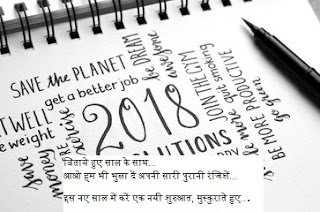 SAVE the PLANET
get a better job
be DREAM
awesome
JOIN THE GYM
quit smoking
be more
BE MORE PRODUCTIVE
go green
EAT WELL
lose weight
exercise
Save money
2018
RESOLUTIONS
बिताये हुए साल के साथ...
आओ हम भी भुला दें अपनी सारी पुरानी रंजिशें...
इस नए साल में करें एक नयी शुरुआत, मुस्कुराते हुए...